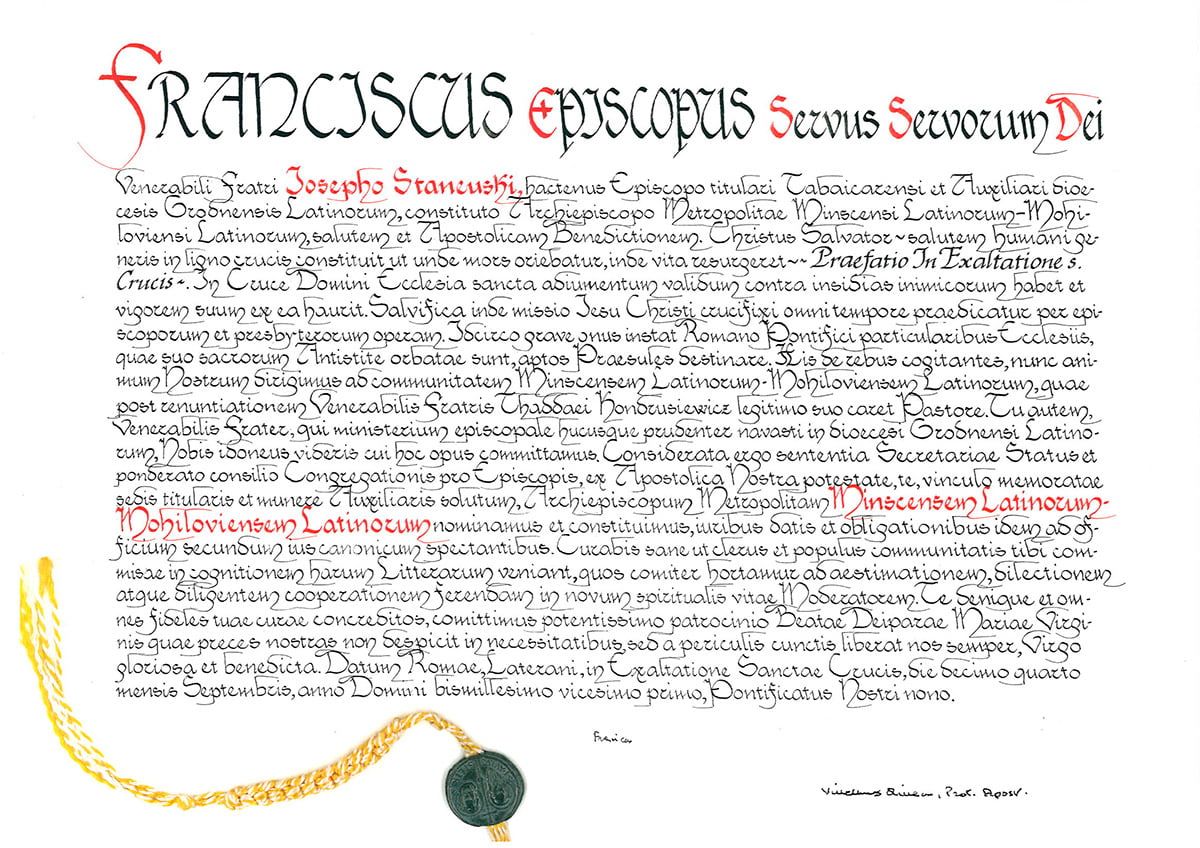 FRANCISCUS EPISCOPUS Servus Servorum Dei
Venerabili Fratri Iosepho Staneuski, hactenus Episcopo titulari Tabaicarensi et Auxiliari dioe-
cesis Grodnensis Latinorum, constituto Archiepiscopo Metropolitae Minscensi Latinorum-Mohi-
loviensi Latinorum, salutem et Apostolicam Benedictionem. Christus Salvator ~ salutem humani ge-
neris in ligno crucis constituit ut unde mors oriebatur, inde vita resurgeret ~~ Praefatio In Exaltatione s.
Crucis ~. In Cruce Domini Ecclesia sancta adiumentum validum contra insidias inimicorum habet et
vigorem suum ex ea haurit. Salvifica inde missio Iesu Christi crucifixi omni tempore praedicatur per epi-
scoporum et presbyterorum operam. Idcirco grave onus instat Romano Pontifici particularibus Ecclesiis,
quae suo sacrorum Antistite orbatae sunt, aptos Praesules destinare. His de rebus cogitantes, nunc ani-
mum Nostrum dirigimus ad communitatem Minscensem Latinorum-Mohiloviensem Latinorum, quae
post renuntiationem Venerabilis Fratris Thaddaei Kondrusiewicz legitimo suo caret Pastore. Tu autem,
Venerabilis Frater, qui ministerium episcopale hucusque prudenter navasti in dioecesi Grodnensi Latino-
rum, Nobis idoneus videris cui hoc opus committamus. Considerata ergo sententia Secretariae Status et
ponderato consilio Congregationis pro Episcopis, ex Apostolica Nostra potestate, te, vinculo memoratae
sedis titularis et munere Auxiliaris solutum, Archiepiscopum Metropolitam Minscensem Latinorum-
Mohiloviensem Latinorum nominamus et constituimus, iuribus datis et obligationibus idem ad of-
ficium secundum ius canonicum spectantibus. Curabis sane ut clerus et populus communitatis tibi com-
missae in cognitionem harum Litterarum veniant, quos comiter hortamur ad aestimationem, dilectionem
atque diligentem cooperationem ferendam in novum spiritualis vitae Moderatorem. Te denique et om-
nes fideles tuae curae concreditos, comittimus potentissimo patrocinio Beatae Deiparae Mariae Virgi-
nis quae preces nostras non despicit in necessitatibus, sed a periculis cunctis liberat nos semper, Virgo
gloriosa et benedicta. Datum Romae, Laterani, in Exaltatione Sanctae Crucis, die decimo quarto
mensis Septembris, anno Domini bismillesimo vicesimo primo, Pontificatus Nostri nono.
Prot. Apost.